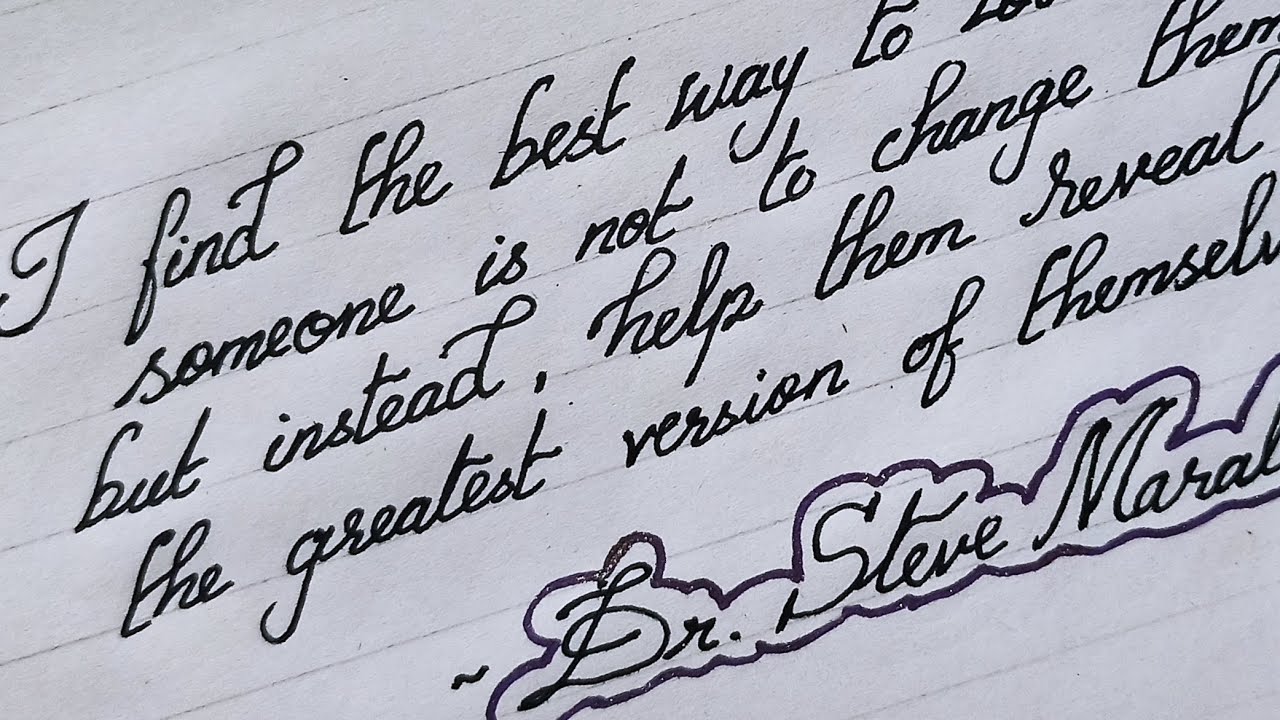 I find the best way to
someone is not to change them
but instead, help them reveal
the greatest version of
~ Dr. Steve